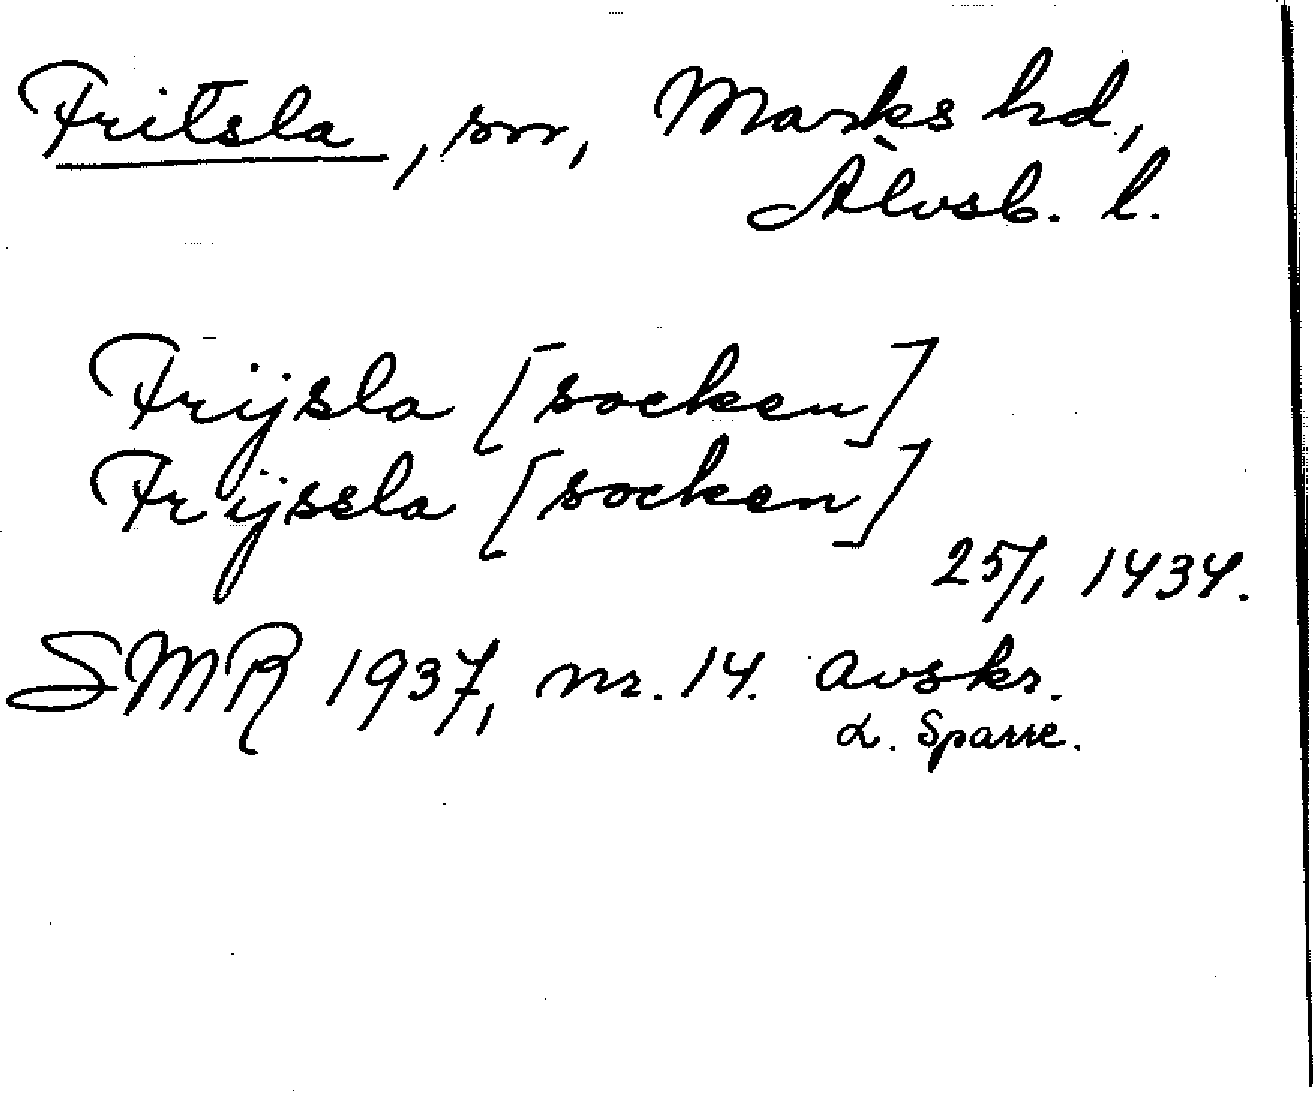 Fritsla, sn, Marks hd,
Älvsb. l.
Frijsla [socken]
Frijssla [socken]
25/1 1434.
SMR 1937, nr. 14. Avskr.
L. Sparre.